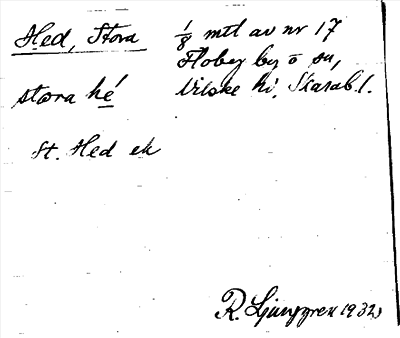 Hed, Stora
1/8 mtl av nr 17
Floby by o sn,
Vilske hd, Skarab.l.
stora hé
St. Hed ek
R. Ljunggren 1932